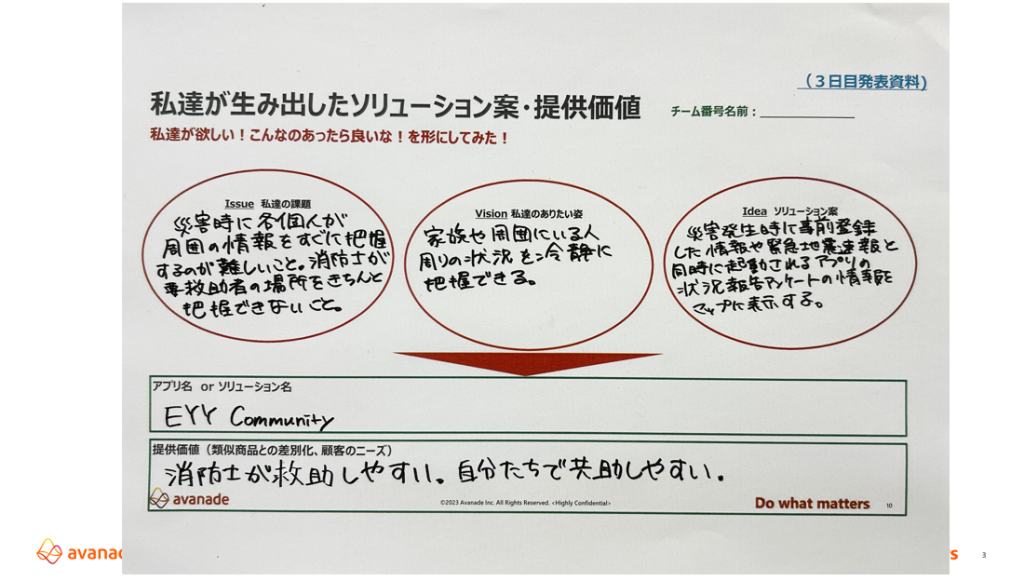 （３日目発表資料)
私達が生み出したソリューション案・提供価値
チーム番号名前：
私達が欲しい！こんなのあったら良いな！を形にしてみた！
Issue 私達の課題
災害時に各個人が
周囲の情報をすぐに把握
するのが難しいこと。消防士が
要救助者の場所をきちんと
把握できないこと。
Vision 私達のありたい姿
家族や周囲にいる人
周りの状況を冷静に
把握できる。
Idea ソリューション案
災害発生時に事前登録
した情報や緊急地震速報と
同時に起動されるアプリの
状況報告アンケートの情報を
マップに表示する。
アプリ名 or ソリューション名
EYY Community
提供価値（類似商品との差別化、顧客のニーズ）
消防士が救助しやすい。自分たちで共助しやすい。
avanade
©2023 Avanade Inc. All Rights Reserved. <Highly Confidential>
Do what matters
10
avanad
rs
3